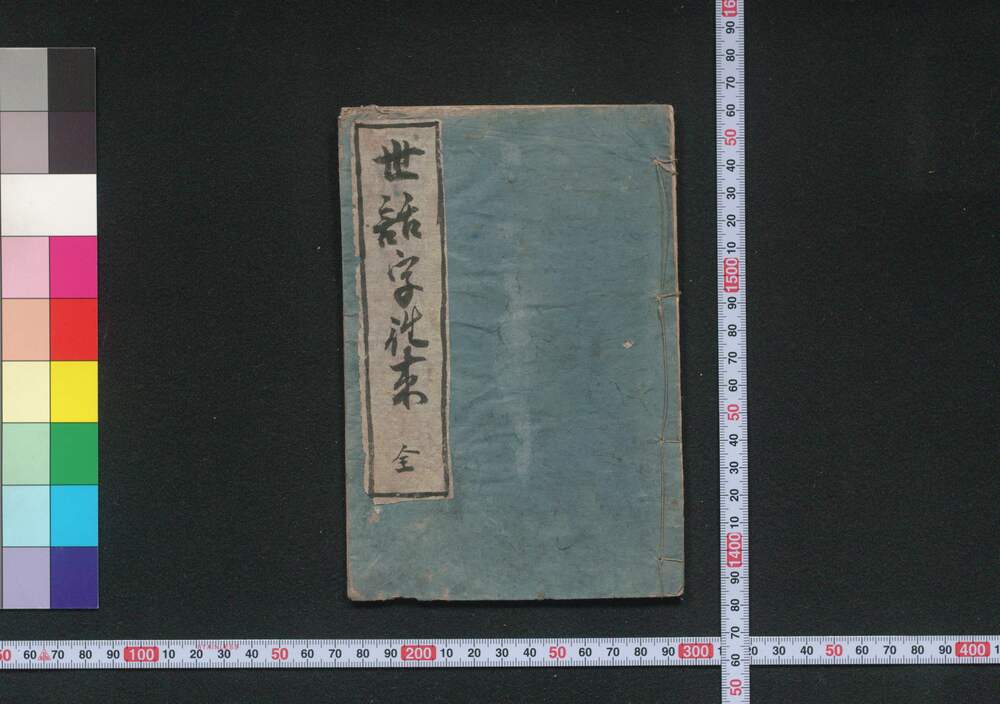 世話字往来
全
50 60 70 80 90 100 10 20 30 40 50 60 70 80 90 200 10 20 30 40 50 60 70 80 90 300 20 30 40 50 60 70 80 90 400
90 80 70 60 50 40 30 20 10 1500 90 80 70 60 50 40 30 20 10 1400 90 80 70 60 50